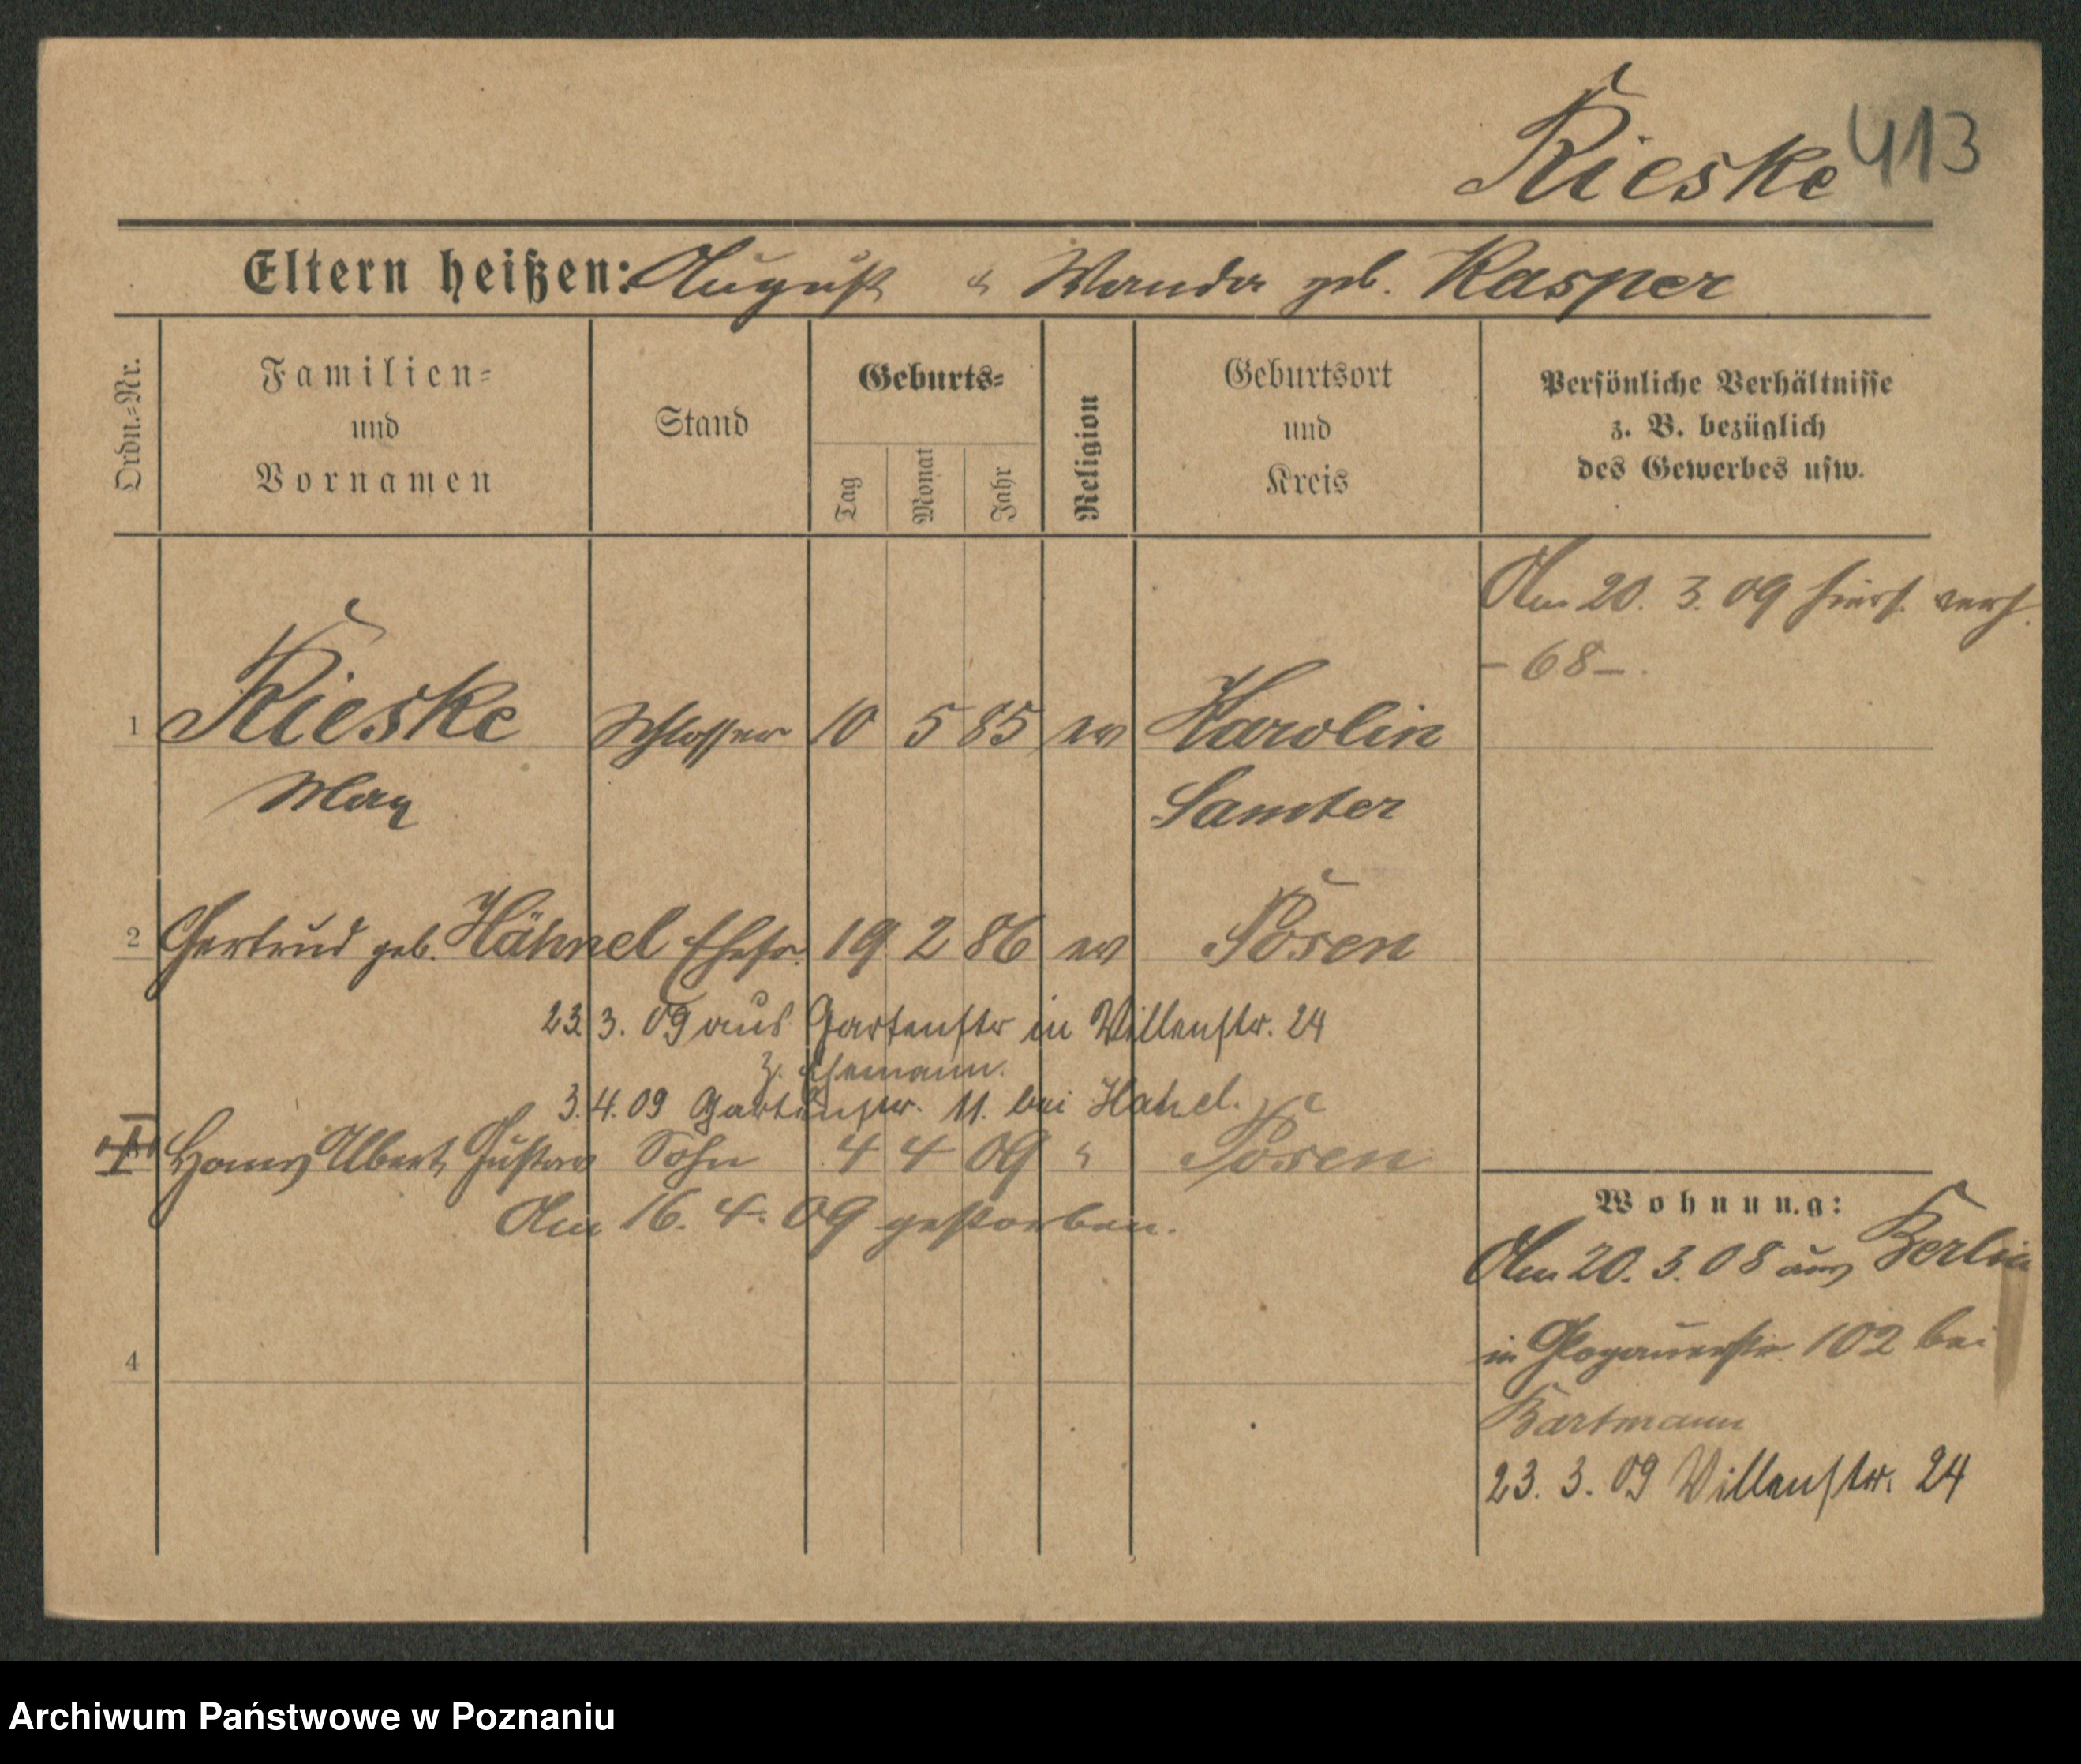 Rieske 413
Eltern heißen: August u Wanda geb. Kasper
Ordn.-Nr.
Familien-
und
Vornamen
Stand
Geburts-
Tag
Monat
Jahr
Religion
Geburtsort
und
Kreis
Persönliche Verhältnisse
z. B. bezüglich
des Gewerbes usw.
Am 20. 3. 09
- 68 -.
1 Rieske Schlosser 10 5 85 ev Karolin
Max Samter
2 Gertrud geb. Hähnel Ehefr. 19 2 86 ev Posen
23. 3. 09 aus Gartenstr in Villenstr. 24
z. Ehemann.
3. 4. 09 Gartenstr. 11. bei Hähnel.
Hans Albert Gustav Sohn 4 4 09 " Posen
Am 16. 4. 09 gestorben.
4
Wohnung:
Am 20. 3. 08 aus Berlin
in Glogauerstr. 102 bei
Bartmann
23. 3. 09 Villenstr. 24
Archiwum Państwowe w Poznaniu